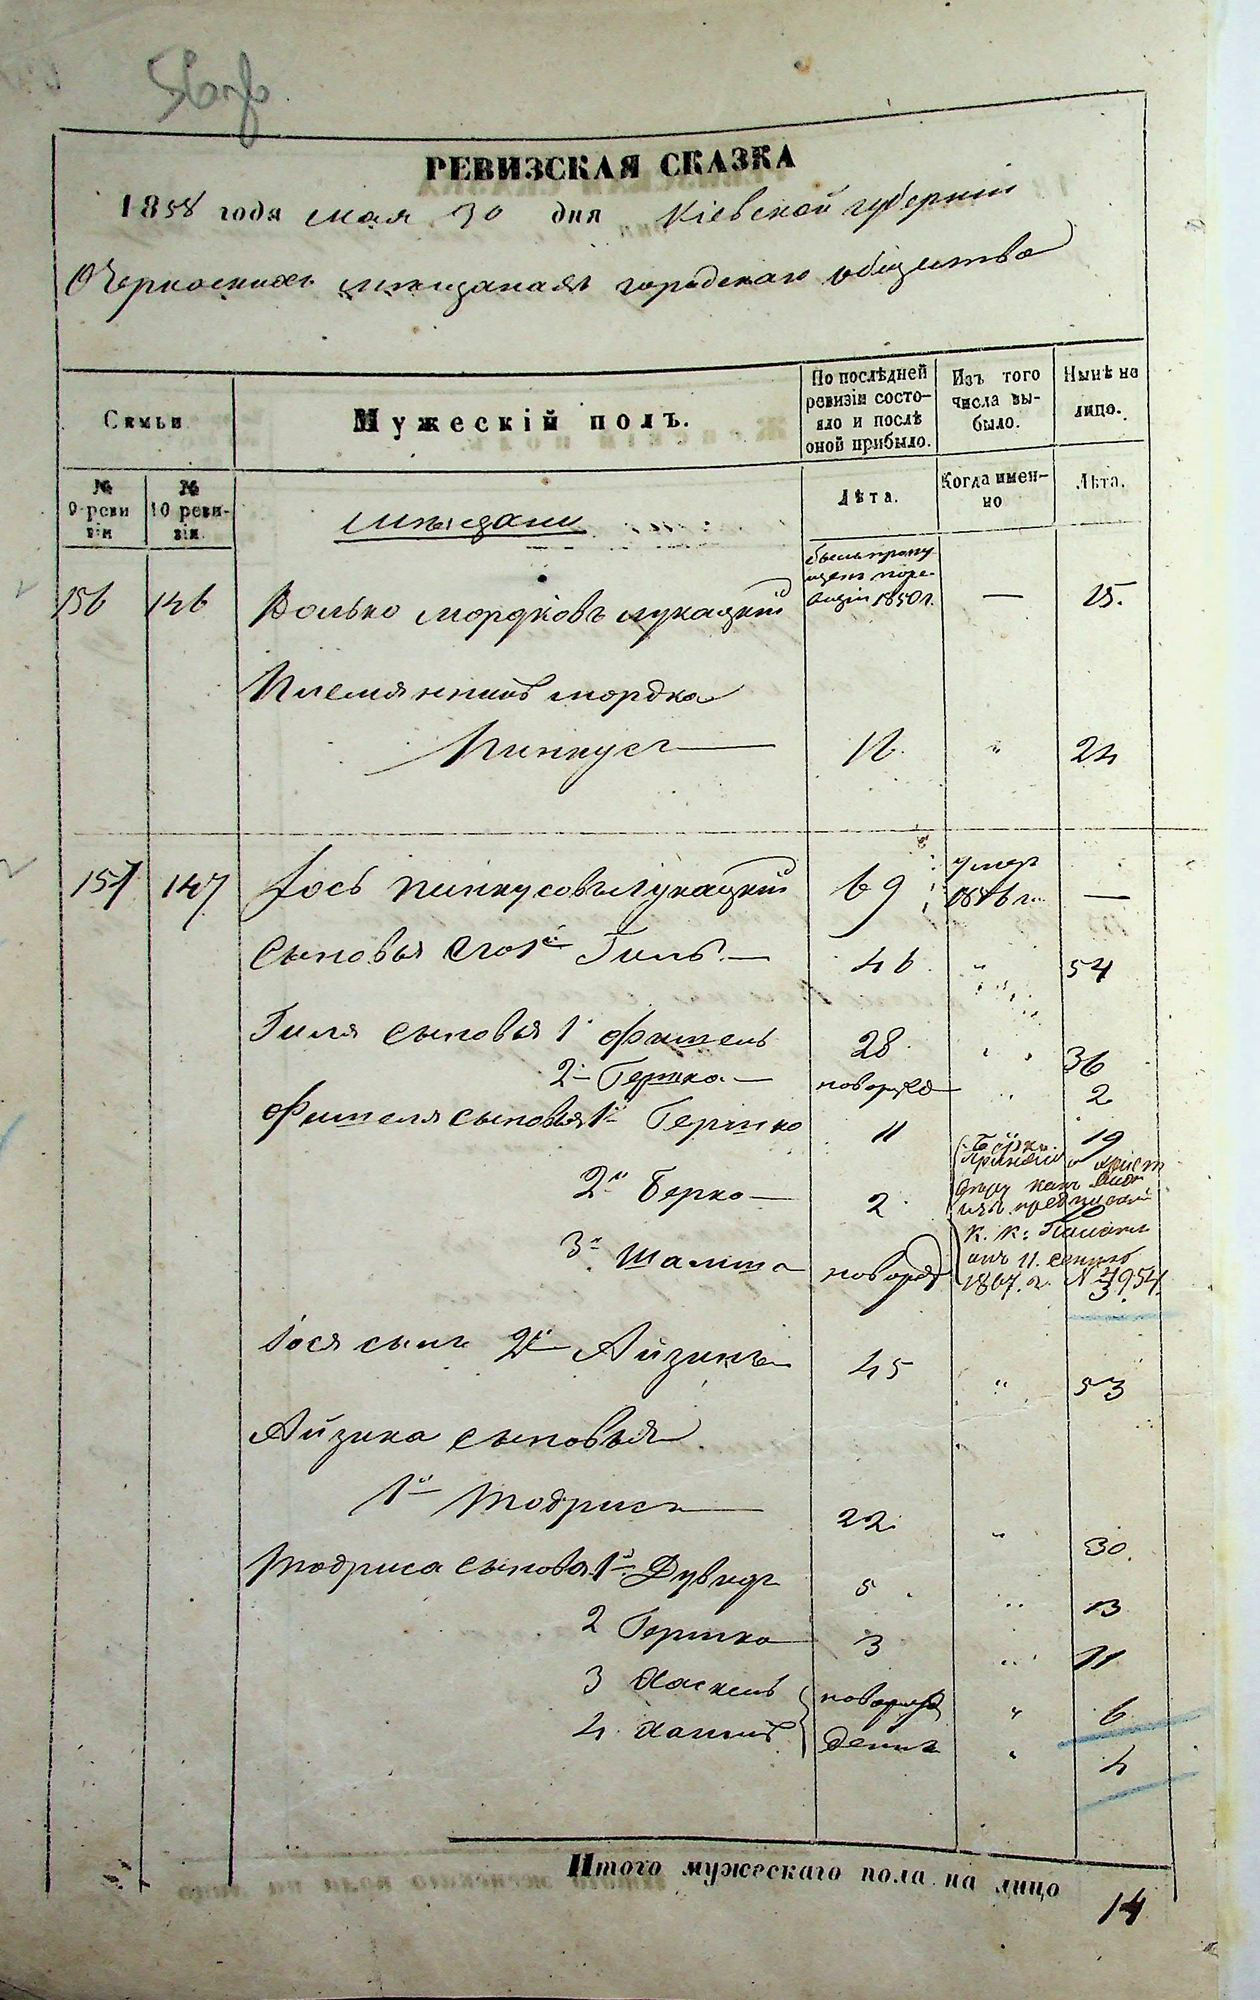 РЕВИЗСКАЯ СКАЗКА
1858 года мая 30 дня Кіевской губерніи
О Черкасскихъ мѣщанахъ городскаго общества
Семьи
Мужескій полъ.
По послѣдней ревизіи состояло и послѣ оной прибыло.
Изъ того числа выбыло.
Нынѣ на лицо.
№ 9 ревизіи
№ 10 ревизіи
мѣщани
Лѣта.
Когда именно
Лѣта.
156 146 Волько Мордковъ Лукацкій былъ пропущенъ по ревизіи 1850 г. — 25.
Племянникъ Мордка
Пинкусъ — 16 " 24
157 147 Іось Пинкусовъ Лукацкій 69 умер 1856 г. —
Сыновья его 1й Гиль — 46 " 54
Гиля сыновья 1 Фишель 28 " 36
2й Гершко — новорожд " 2
Фишеля сыновья 1й Гершко 11 19
2й Берко — 2
3й Шалма новорожд 3.
К. К. Палаты
1867. г. № 4954.
Іося сынъ 2й Айзикъ 45 " 53
Айзика сыновья
1й Тодрисъ — 22 " 30.
Тодриса сыновья 1й Дувидъ 5 " 13
2 Гершко 3 " 11
3 Хаскель новорож " 6
4 Хаимъ денъ " 4
Итого мужескаго пола на лицо 14